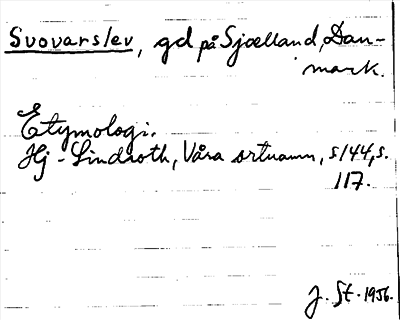 Svovarslev, gd på Sjælland, Dan-
mark.
Etymologi.
Hj. Lindroth, Våra ortnamn, s. 144, s.
117.
J. St. 1956.